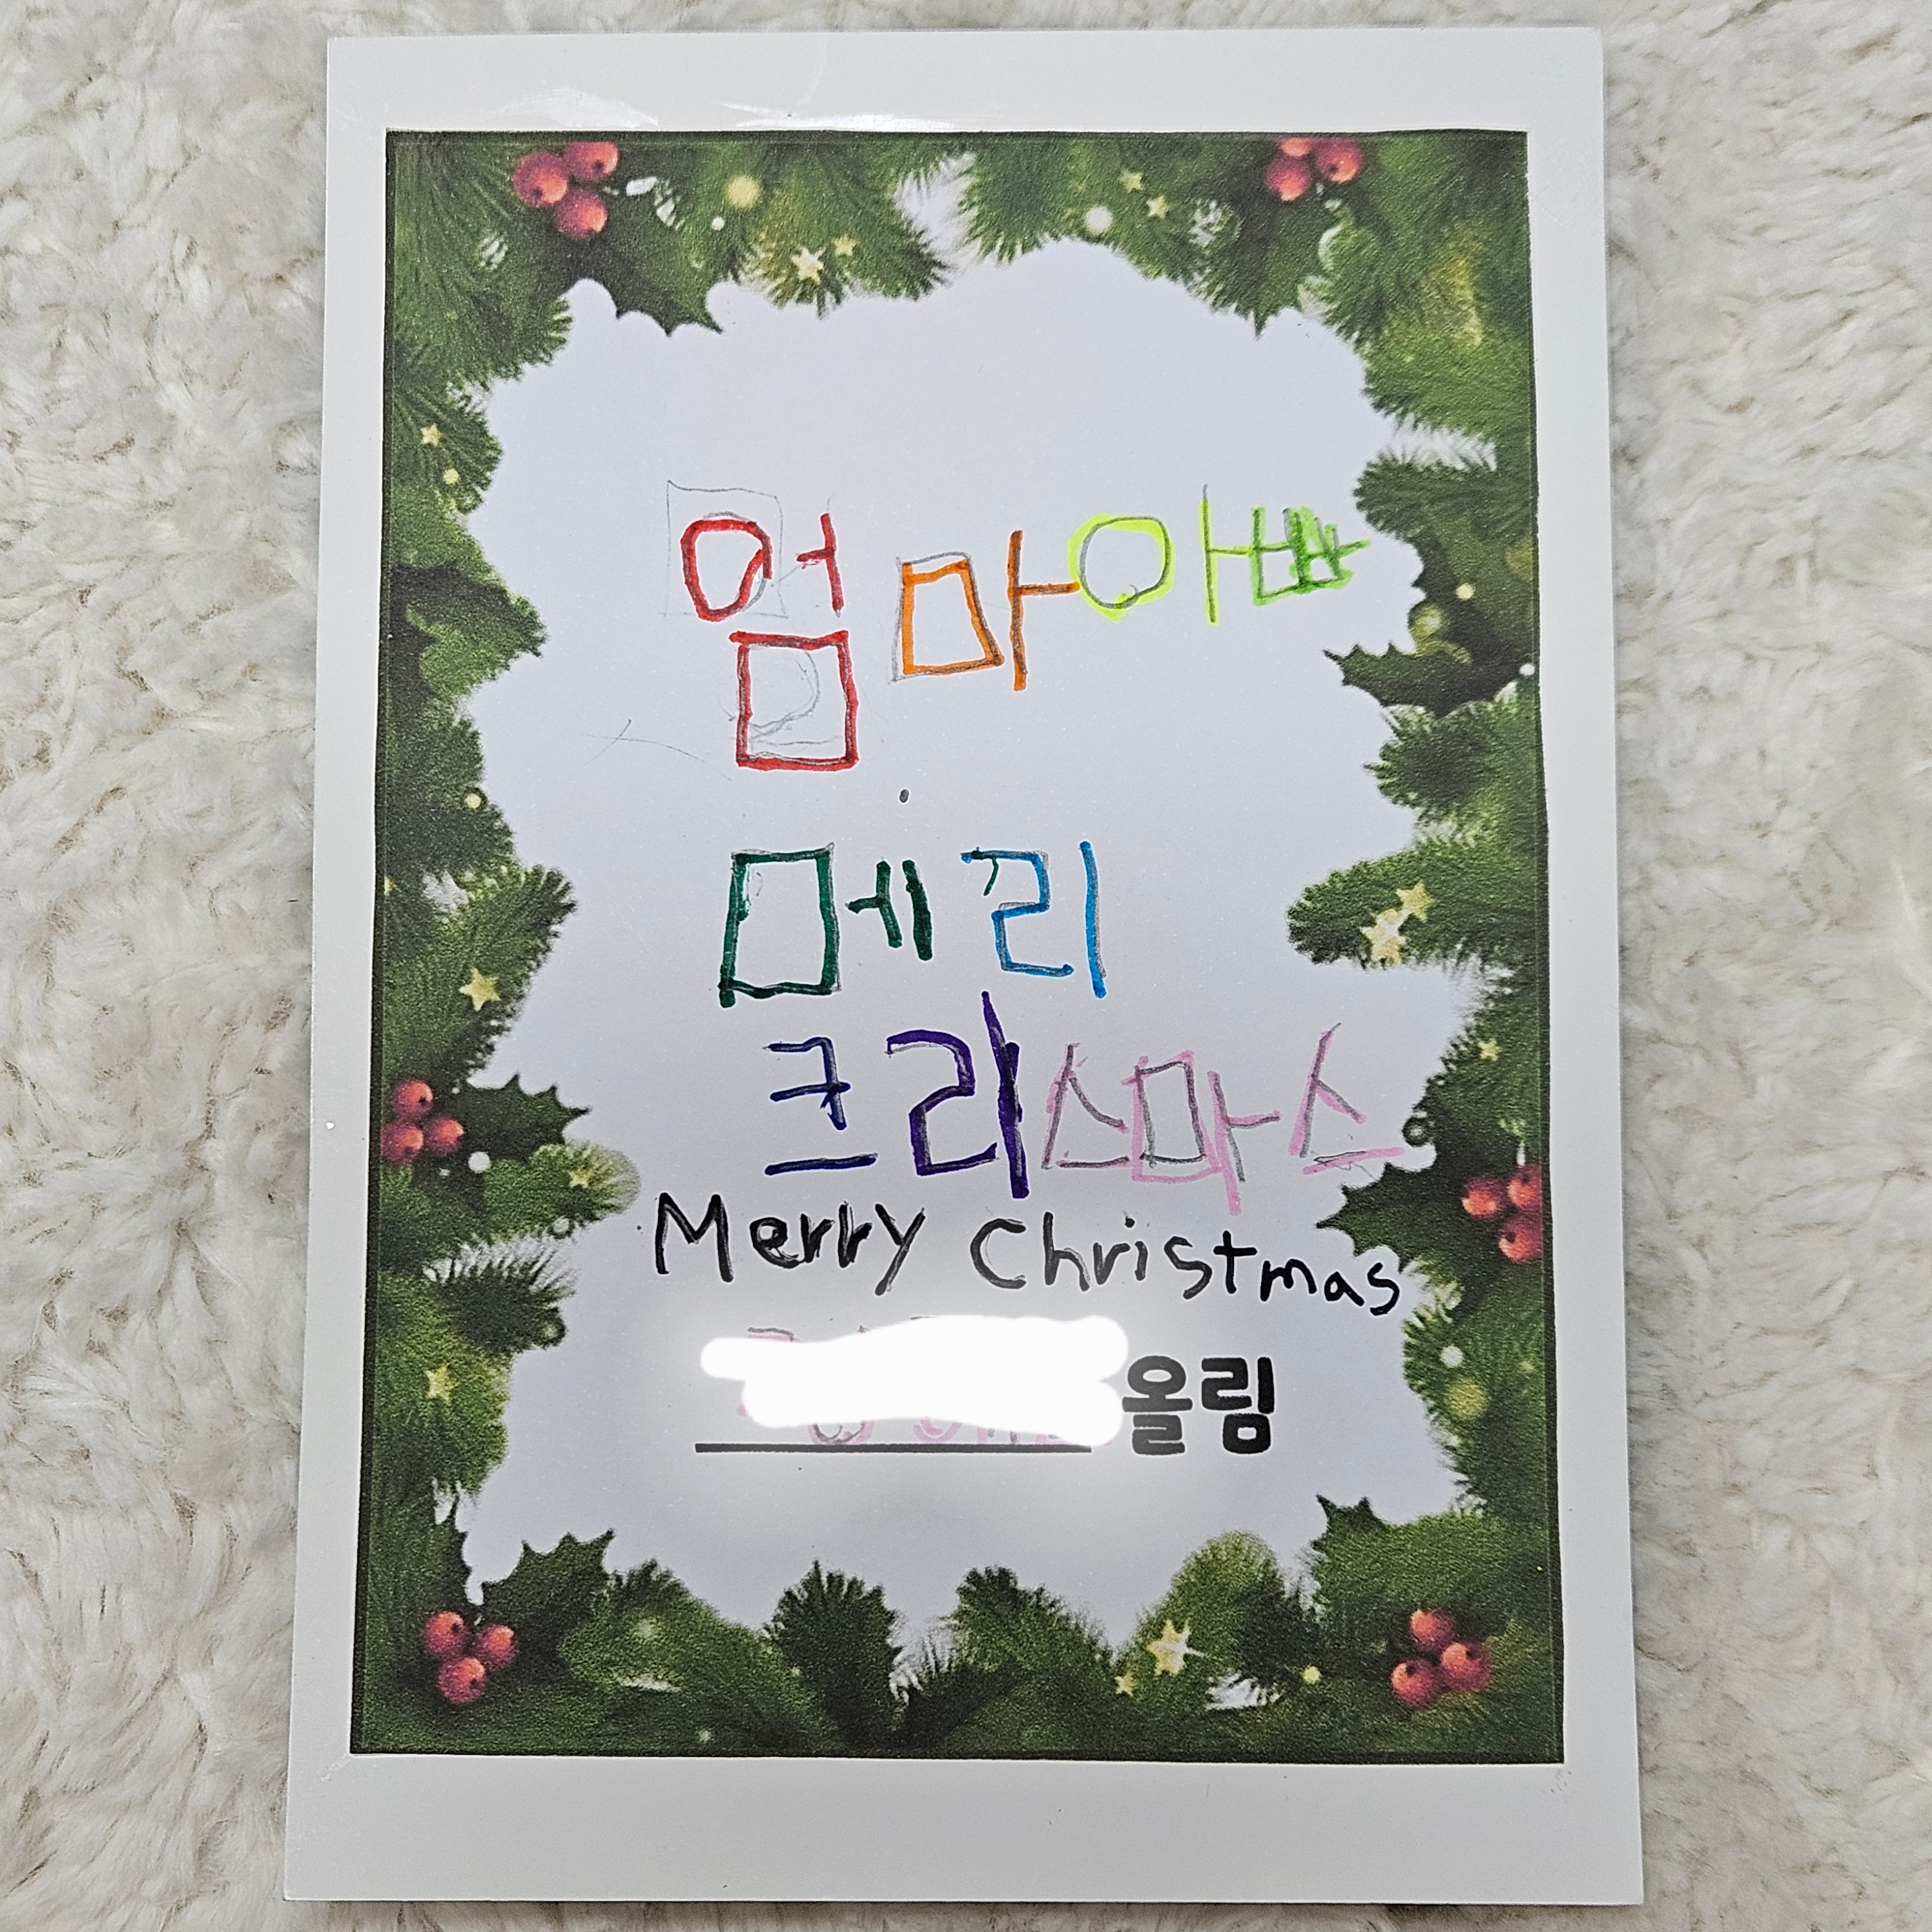 엄마아빠
메리
크리스마스
Merry Christmas
올림